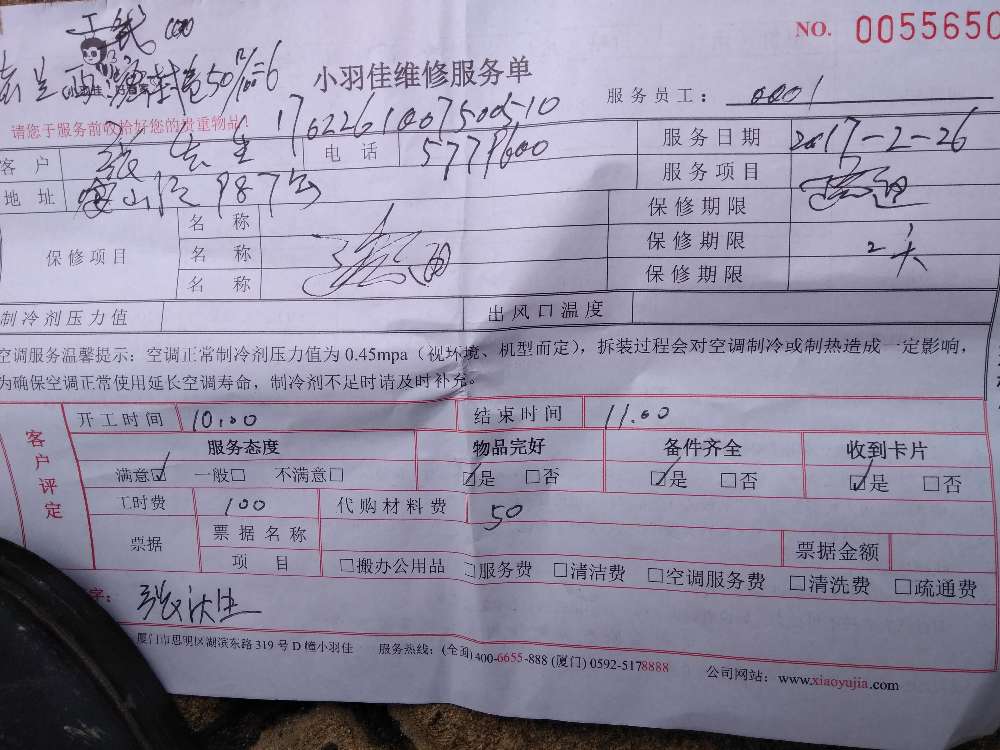 NO. 0055650
小羽佳维修服务单
服务员工: 0001
请您于服务前收拾好您的贵重物品!
1762261007500510
客户 张 电话 5779600 服务日期 2017-2-26
地址 山 987号 服务项目
保修项目 名称 保修期限
名称 保修期限 2天
名称 保修期限
制冷剂压力值 出风口温度
空调服务温馨提示: 空调正常制冷剂压力值为 0.45mpa (视环境、机型而定), 拆装过程会对空调制冷或制热造成一定影响,
为确保空调正常使用延长空调寿命, 制冷剂不足时请及时补充。
客户评定
开工时间 10:00 结束时间 11:00
服务态度 物品完好 备件齐全 收到卡片
满意☑ 一般□ 不满意□ ☑是 □否 ☑是 □否 ☑是 □否
工时费 100 代购材料费 50
票据 票据名称 票据金额
项目 □搬办公用品 □服务费 □清洁费 □空调服务费 □清洗费 □疏通费
字: 张
厦门市思明区湖滨东路 319 号 D 幢小羽佳 服务热线: (全国) 400-6655-888 (厦门) 0592-5178888 公司网站: www.xiaoyujia.com